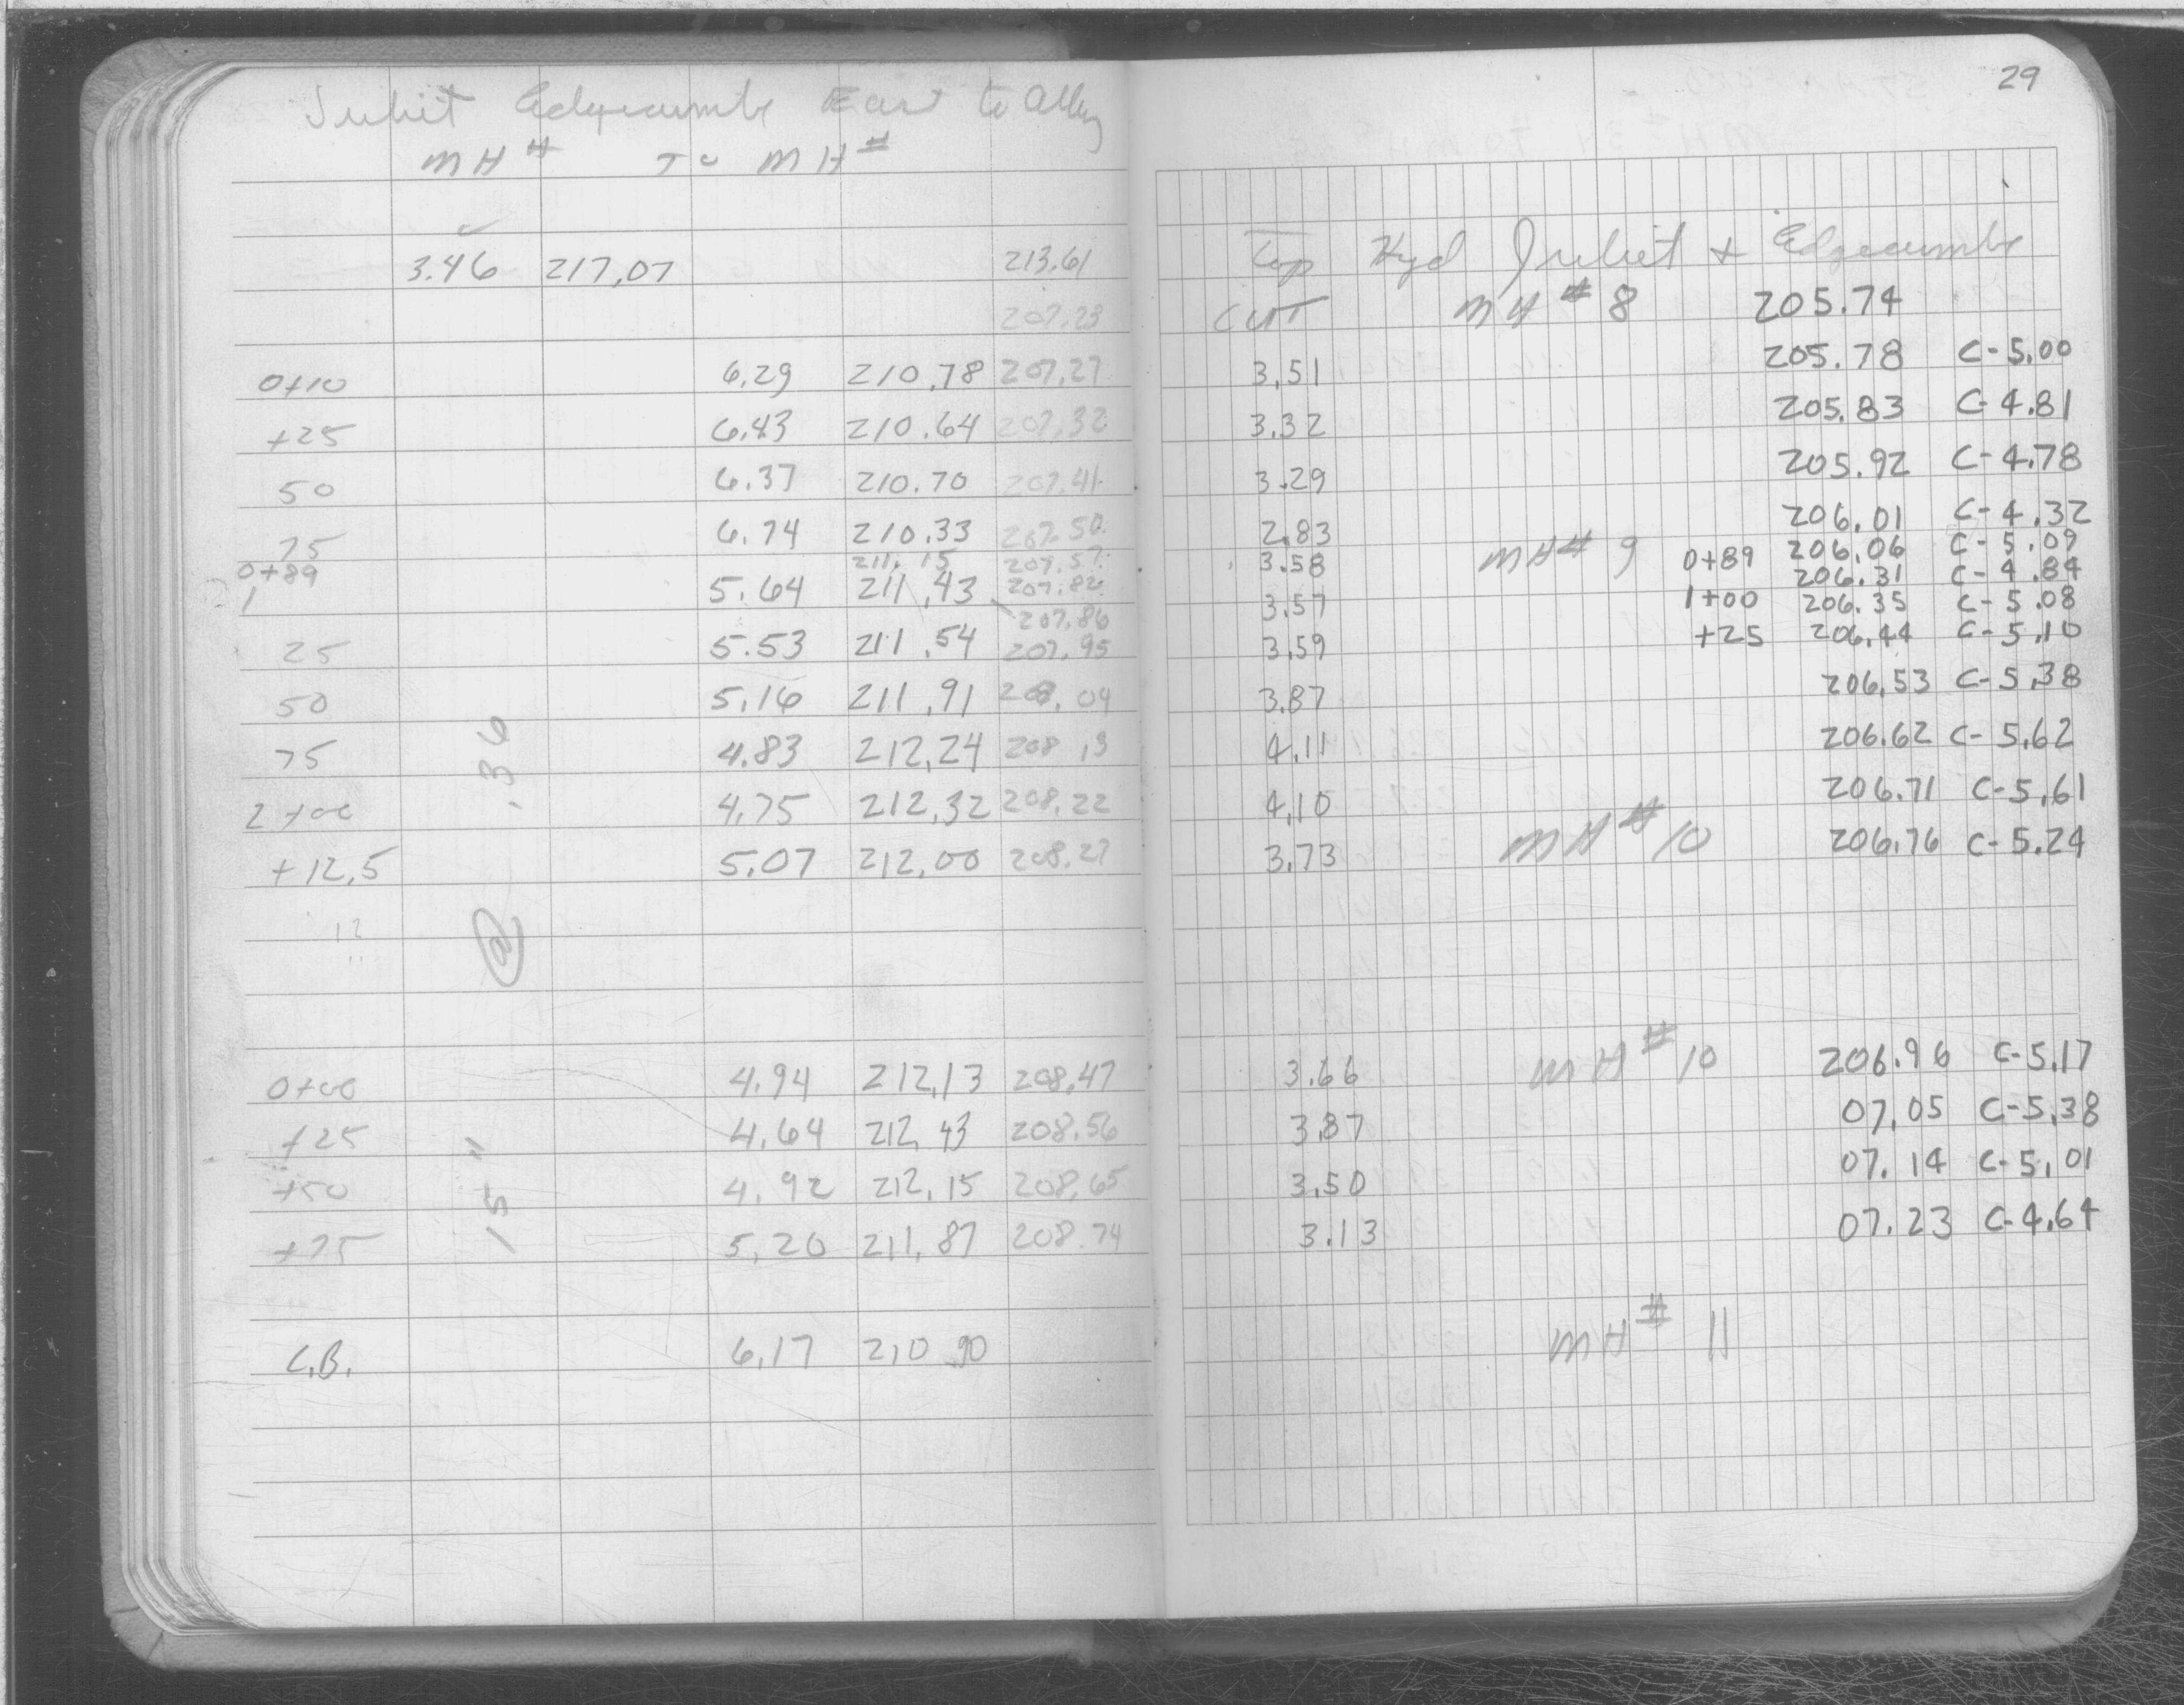 29
Juliet Edgecumbe East to Alley
MH # To MH #
3.46 217.07 213.61 Top Hyd Juliet + Edgecumbe
207.23 CUT MH # 8 205.74
0+10 6.29 210.78 207.27 3.51 205.78 C-5.00
+25 6.43 210.64 207.32 3.32 205.83 C-4.81
50 6.37 210.70 207.41 3.29 205.92 C-4.78
75 6.74 210.33 207.50 2.83 206.01 C-4.32
0+89 211.15 207.57 3.58 MH # 9 0+89 206.06 C-5.09
207.82 206.31 C-4.84
1 5.64 211.43 207.86 3.57 1+00 206.35 C-5.08
25 5.53 211.54 207.95 3.59 +25 206.44 C-5.10
50 5.16 211.91 208.04 3.87 206.53 C-5.38
75 4.83 212.24 208.13 4.11 206.62 C-5.62
2+00 4.75 212.32 208.22 4.10 206.71 C-5.61
+12.5 5.07 212.00 208.27 3.73 MH # 10 206.76 C-5.24
12
15" @ .36
0+00 4.94 212.13 208.47 3.66 MH # 10 206.96 C-5.17
+25 4.64 212.43 208.56 3.87 07.05 C-5.38
+50 4.92 212.15 208.65 3.50 07.14 C-5.01
+75 5.20 211.87 208.74 3.13 07.23 C-4.64
C.B. 6.17 210.90 MH # 11